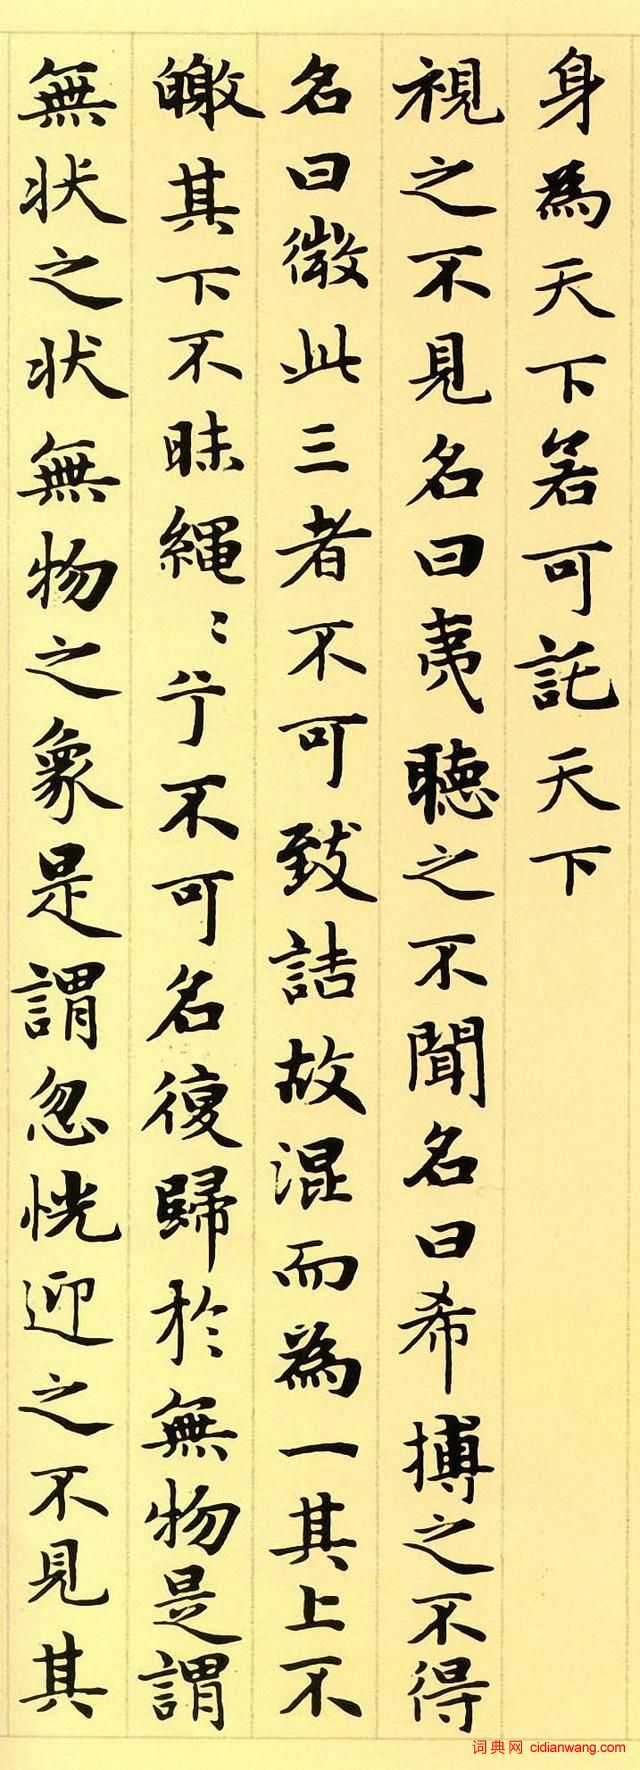 身為天下若可託天下
視之不見名曰夷聴之不聞名曰希搏之不得
名曰微此三者不可致詰故混而為一其上不
皦其下不昧繩〻兮不可名復歸於無物是謂
無状之状無物之象是謂忽恍迎之不見其
词典网 cidianwang.com